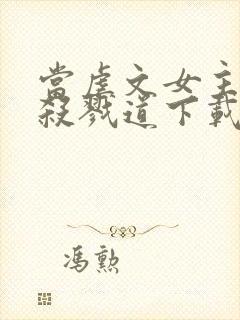 当虐文女主
杀戮道下载
冯勲